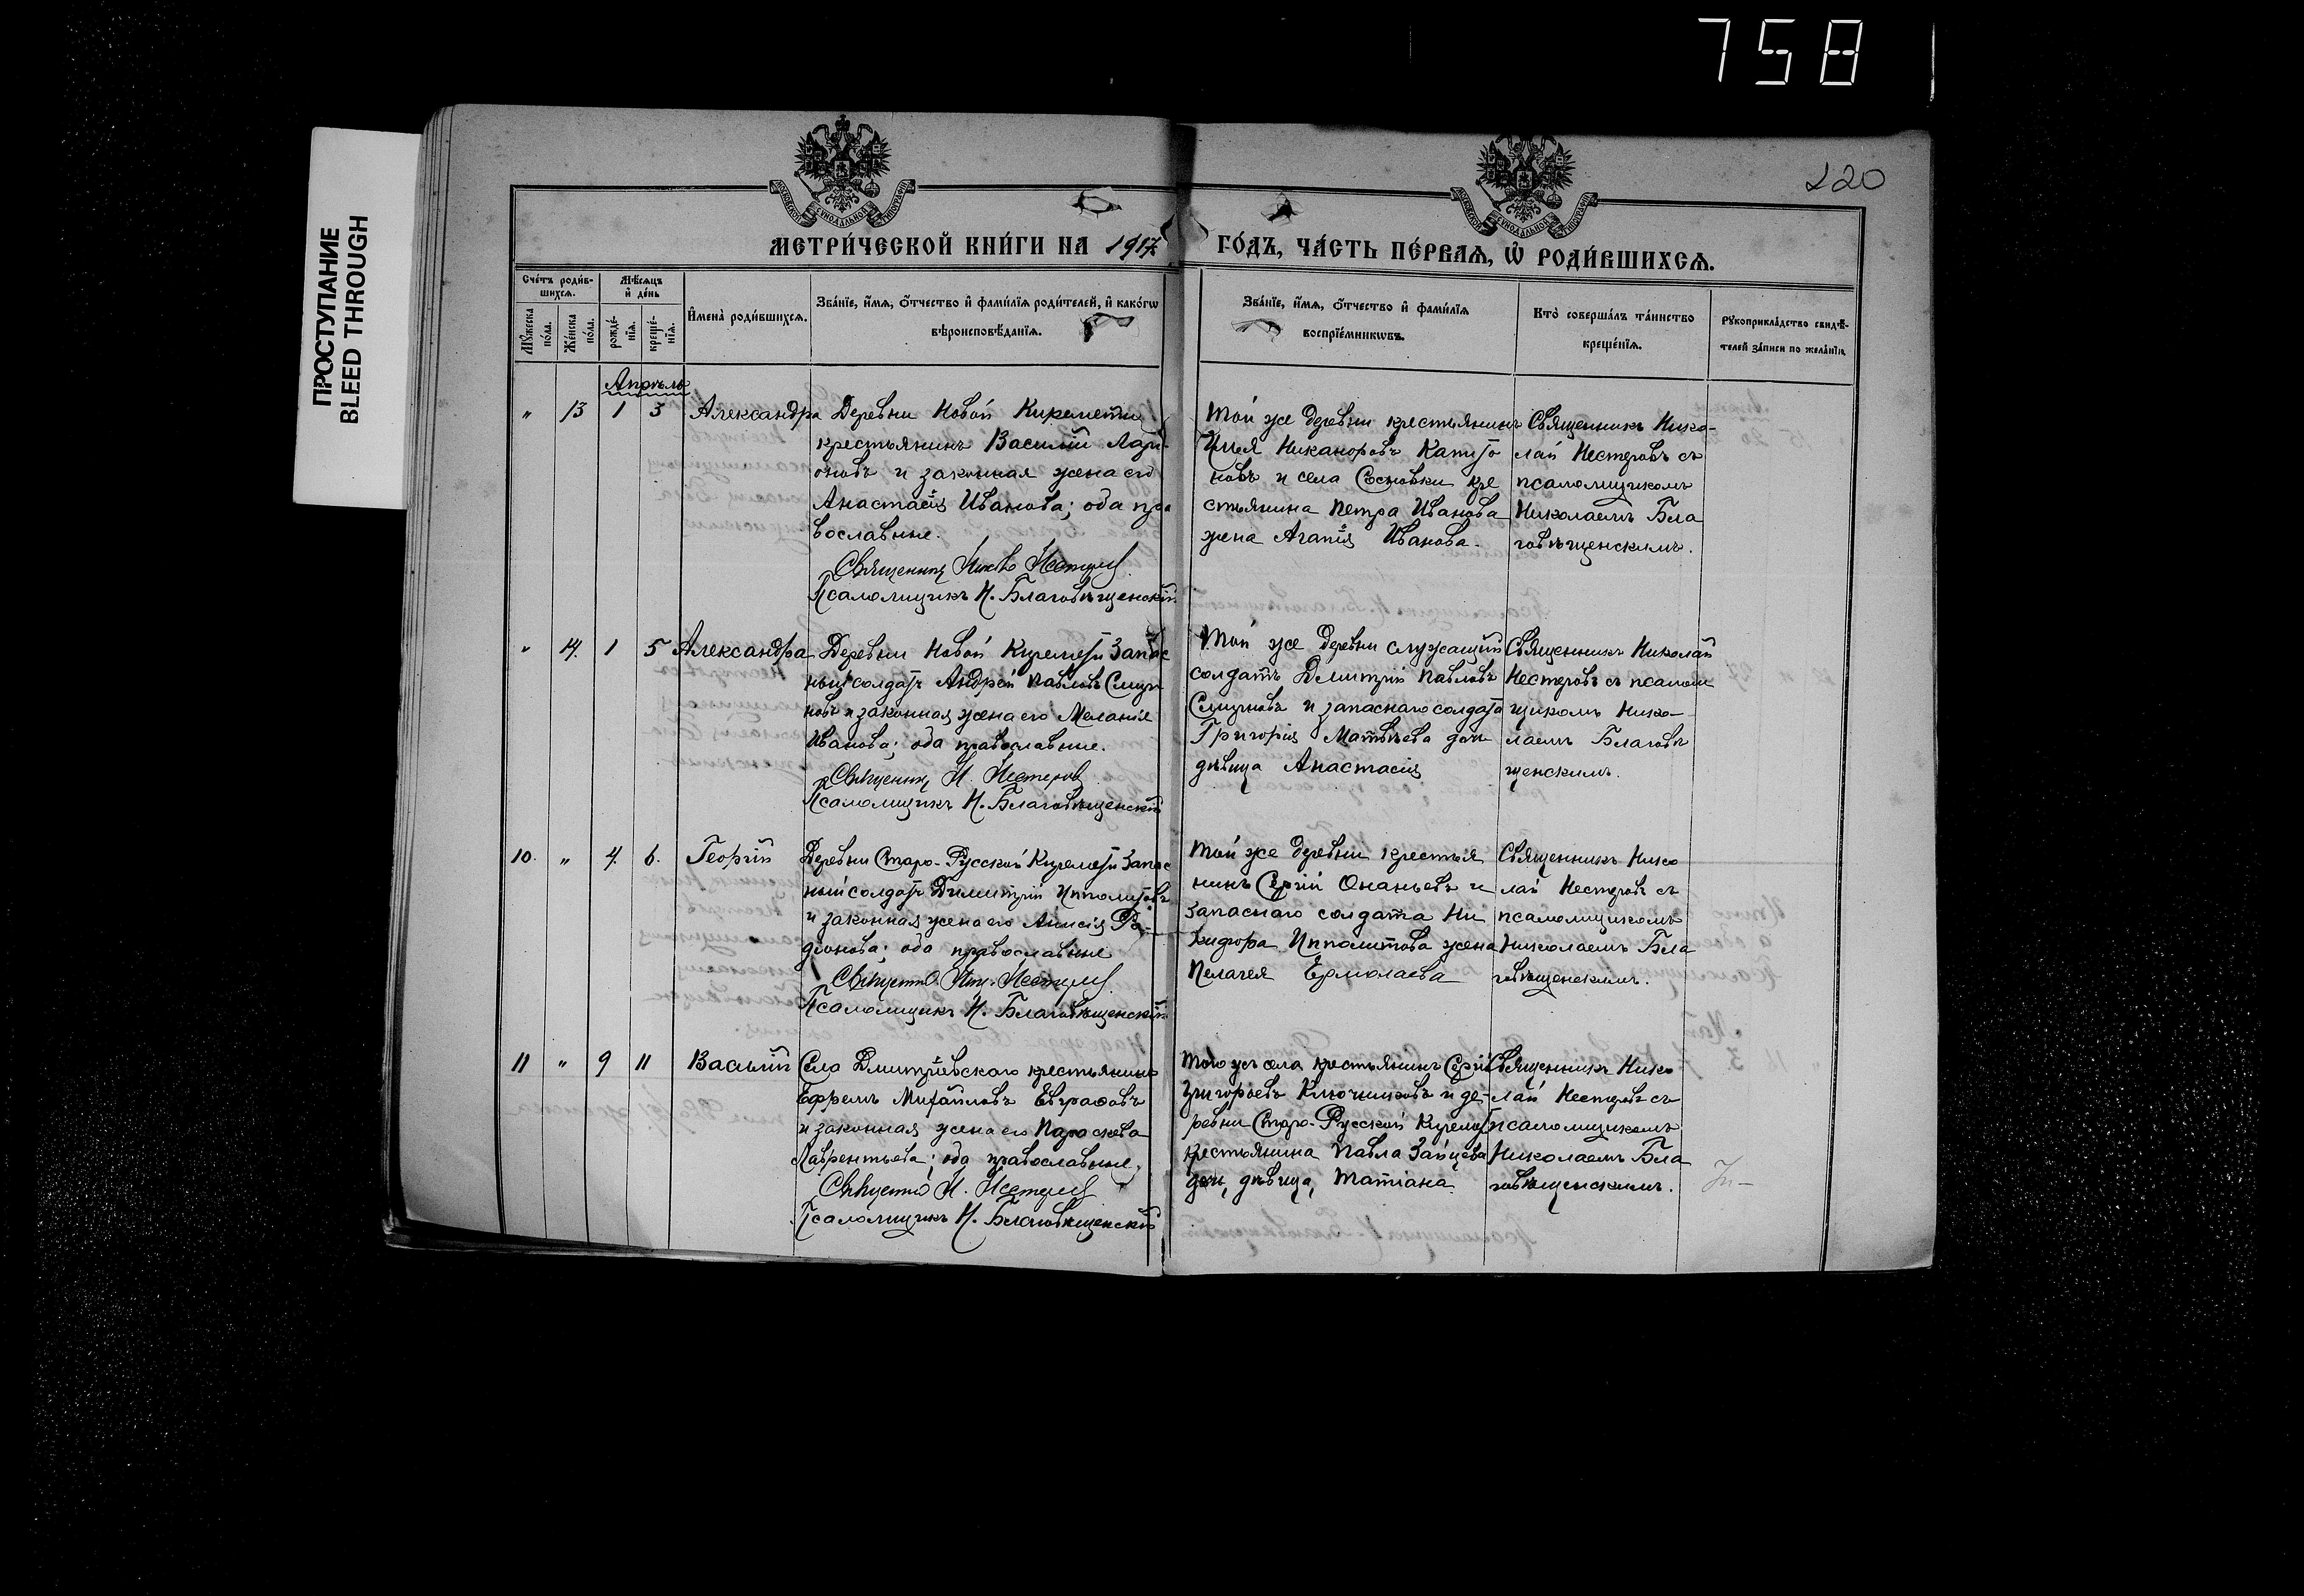 758
ПРОСТУПАНИЕ
BLEED THROUGH
220
МОСКОВСКОЙ СѴНОДАЛЬНОЙ ТИПОГРАФІИ
МОСКОВСКОЙ СѴНОДАЛЬНОЙ ТИПОГРАФІИ
МЕТРИ́ЧЕСКОЙ КНИ́ГИ НА 1917
ГО́ДЪ, ЧА́СТЬ ПЕ́РВАѦ, Ѽ РОДИ́ВШИХСѦ.
Сче́тъ роди́в-
шихсѧ.
Мѣ́сѧцъ
и҆ де́нь
Мꙋ́жеска
по́ла.
Же́нска
по́ла.
рожде́-
нїѧ.
креще́-
нїѧ.
И҆мена̀ роди́вшихсѧ.
Зва́нїе, и҆́мѧ, ѻ҆́тчество и҆ фами́лїѧ роди́телей, и҆ како́гѡ
вѣроисповѣ́данїѧ.
Зва́нїе, и҆́мѧ, ѻ҆́тчество и҆ фами́лїѧ
воспрїе́мникѡвъ.
Кто̀ соверша́лъ та́инство
креще́нїѧ.
Рꙋкоприкла́дство свидѣ́-
телей за́писи по жела́нїю.
Апрѣль
" 13 1 3 Александра
Деревни Новой Киремети
крестьянинъ Василій Лари-
оновъ и законная жена его
Анастасія Иванова; оба пра
вославные.
Священникъ Никол Нестеровъ
Псаломщикъ Н. Благовѣщенскій
Той же деревни крестьянинъ
Илья Никаноровъ Капито
новъ и села Сосновки кре
стьянина Петра Иванова
жена Агапія Иванова.
Священникъ Нико-
лай Нестеровъ съ
псаломщикомъ
Николаемъ Бла
говѣщенскимъ.
" 14. 1 5 Александра
Деревни Новой Киремети Запас
ный солдатъ Андрей Павловъ Смир
новъ и законная жена его Меланія
Иванова; оба православные.
Священникъ Н. Нестеровъ
Псаломщикъ Н. Благовѣщенскій
Той же деревни служащій
солдатъ Дмитрій Павловъ
Смирновъ и запаснаго солдата
Григорія Матвѣева дочь
дѣвица Анастасія
Священникъ Николай
Нестеровъ съ псалом
щикомъ Нико-
лаемъ Благовѣ
щенскимъ.
10. " 4. 6. Георгій
Деревни Старо-Русской Киремети Запас
ный солдатъ Димитрій Ипполитовъ
и законная жена его Анисія Ра-
діонова; оба православные
Священникъ Ник. Нестеровъ
Псаломщикъ Н. Благовѣщенскій
Той же деревни крестья
нинъ Сергій Ананьевъ и
запаснаго солдата Ни
кифора Ипполитова жена
Пелагея Ермолаева
Священникъ Нико
лай Нестеровъ съ
псаломщикомъ
Николаемъ Бла
говѣщенскимъ.
11 " 9 11 Василій
Села Дмитріевскаго крестьянинъ
Ефремъ Михайловъ Евграфовъ
и законная жена его Параскева
Лаврентьева; оба православные.
Священникъ Н. Нестеровъ
Псаломщикъ Н. Благовѣщенскій
Того же села крестьянинъ Сергій
Григорьевъ Ключниковъ и де-
ревни Старо-Русской Киремети
крестьянина Павла Зайцева
дочь, дѣвица, Татіана
Священникъ Нико
лай Нестеровъ съ
псаломщикомъ
Николаемъ Бла
говѣщенскимъ.